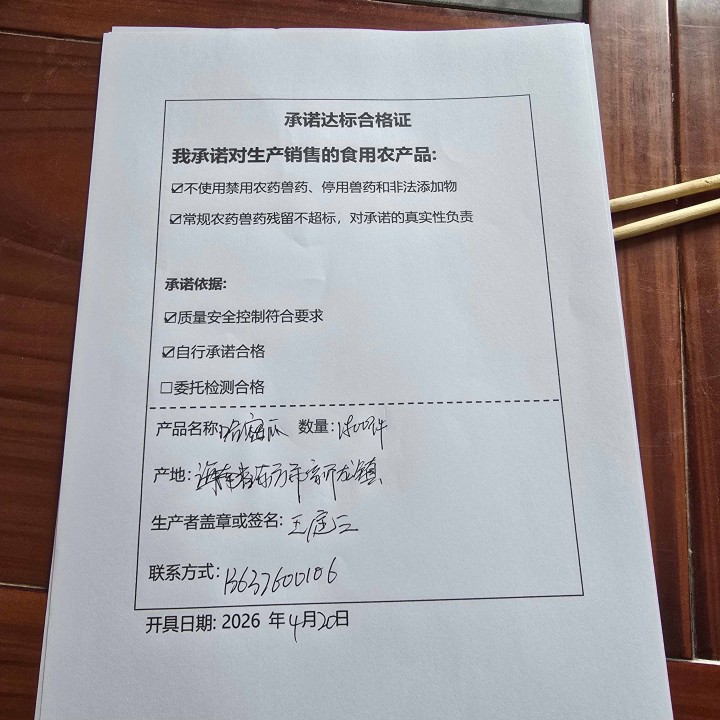 承诺达标合格证
我承诺对生产销售的食用农产品:
☑不使用禁用农药兽药、停用兽药和非法添加物
☑常规农药兽药残留不超标，对承诺的真实性负责
承诺依据:
☑质量安全控制符合要求
☑自行承诺合格
☐委托检测合格
产品名称: 哈密瓜 数量:
产地: 海南省东方市新龙镇
生产者盖章或签名: 王庭三
联系方式: 13637600106
开具日期: 2026 年4月20日